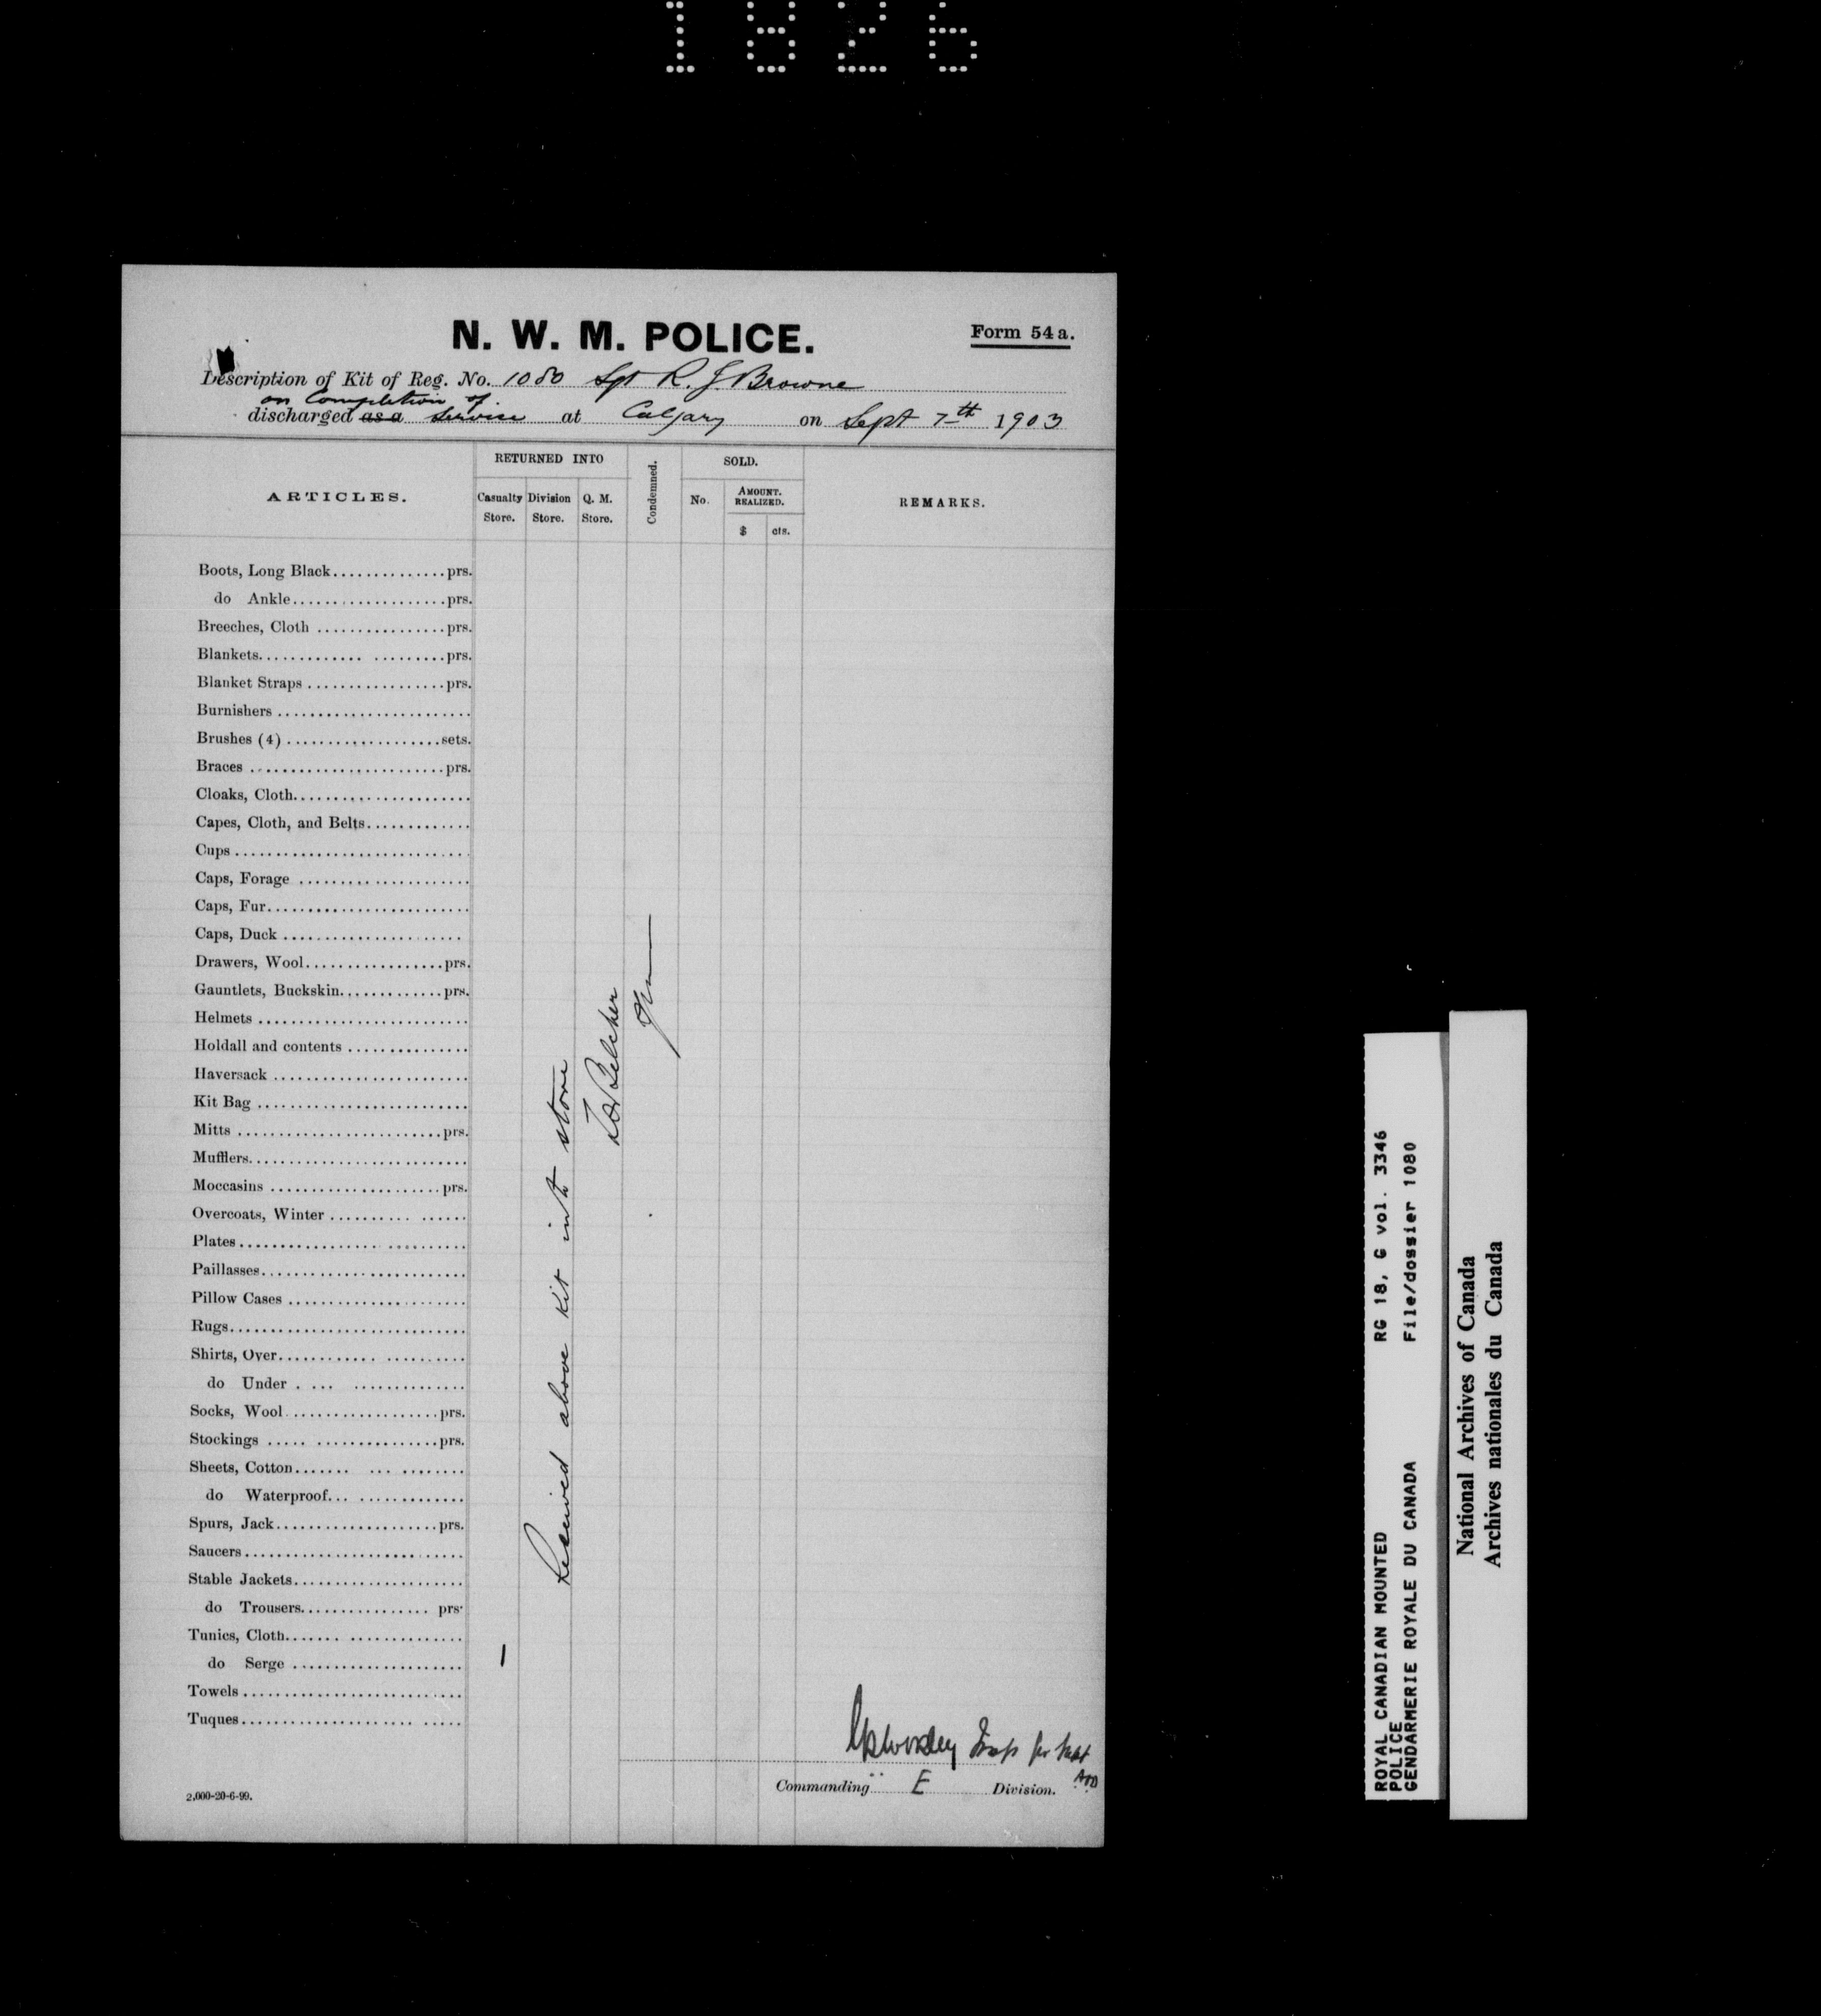 1826
N. W. M. POLICE.
Form 54 a.
Description of Kit of Reg. No. 1080 Sgt R. J. Browne
on Completion of
discharged as a service at Calgary on Sept 7th 1903
ARTICLES.
RETURNED INTO
Casualty Store.
Division Store.
Q. M. Store.
Condemned.
SOLD.
No.
AMOUNT. REALIZED.
$ cts.
REMARKS.
Boots, Long Black..............prs.
do Ankle...................prs.
Breeches, Cloth ................prs.
Blankets............. .........prs.
Blanket Straps .................prs.
Burnishers ........................
Brushes (4) ...................sets.
Braces ........................prs.
Cloaks, Cloth......................
Capes, Cloth, and Belts.............
Cups .............................
Caps, Forage .....................
Caps, Fur.........................
Caps, Duck ......................
Drawers, Wool.................prs.
Gauntlets, Buckskin.............prs.
Helmets ..........................
Holdall and contents ...............
Haversack ........................
Kit Bag ..........................
Mitts .........................prs.
Mufflers...........................
Moccasins .....................prs.
Overcoats, Winter .......... ......
Plates................. ..........
Paillasses.........................
Pillow Cases ......................
Rugs.............................
Shirts, Over............ ..........
do Under . .... ..............
Socks, Wool...................prs.
Stockings ..... ...............prs.
Sheets, Cotton....... ... ........
do Waterproof... .............
Spurs, Jack....................prs.
Saucers...........................
Stable Jackets.....................
do Trousers................ prs.
Tunics, Cloth....... ..............
do Serge ..................... 1
Towels...........................
Tuques..................... .....
Received above kit into store
Belcher
Commanding E Division.
2,000-20-6-99.
ROYAL CANADIAN MOUNTED
POLICE
GENDARMERIE ROYALE DU CANADA
RG 18, G vol. 3346
File/dossier 1080
National Archives of Canada
Archives nationales du Canada